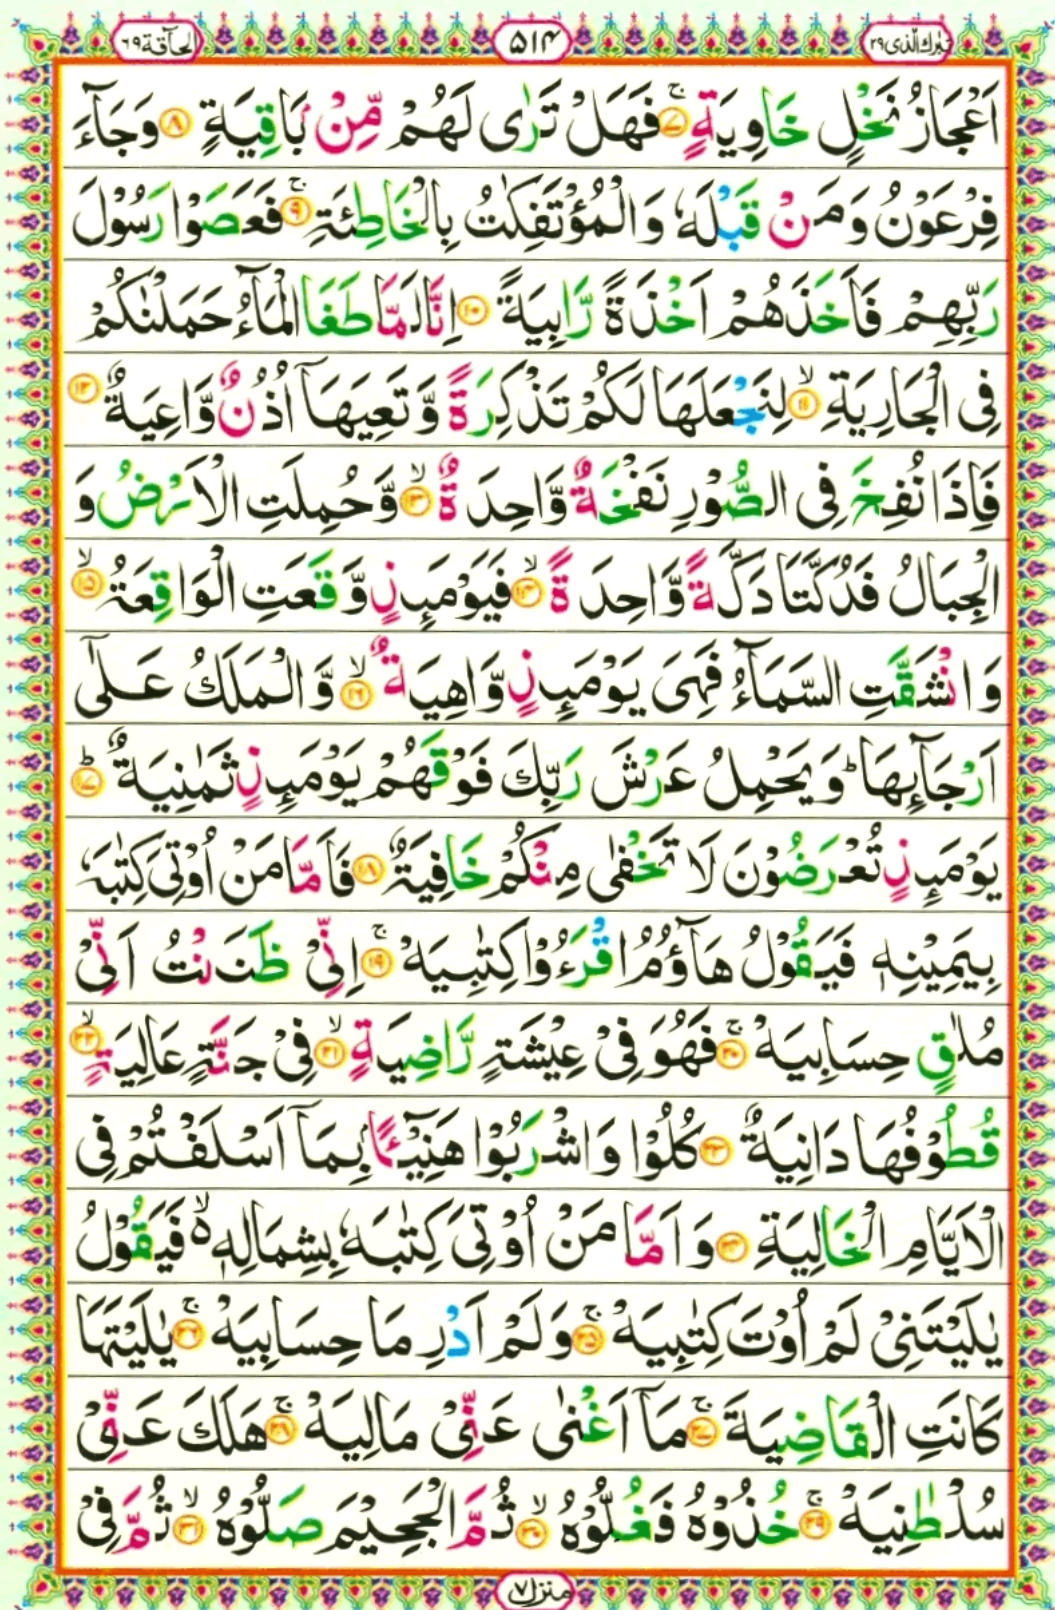 تبرك الذى ٢٩
۵۱۴
الحآقة ٦٩
اَعْجَازُ نَخْلٍ خَاوِيَةٍ ۚ‏﴿۷﴾ فَهَلْ تَرٰى لَهُمْ مِّنْۢ بَاقِيَةٍ ﴿۸﴾ وَجَآءَ
فِرْعَوْنُ وَمَنْ قَبْلَهٗ وَالْمُؤْتَفِكٰتُ بِالْخَاطِئَةِ ۚ‏﴿۹﴾ فَعَصَوْا رَسُوْلَ
رَبِّهِمْ فَاَخَذَهُمْ اَخْذَةً رَّابِيَةً ﴿۱۰﴾ اِنَّا لَمَّا طَغَا الْمَآءُ حَمَلْنٰكُمْ
فِى الْجَارِيَةِ ۙ‏﴿۱۱﴾ لِنَجْعَلَهَا لَكُمْ تَذْكِرَةً وَّتَعِيَهَآ اُذُنٌ وَّاعِيَةٌ ﴿۱۲﴾
فَاِذَا نُفِخَ فِى الصُّوْرِ نَفْخَةٌ وَّاحِدَةٌ ۙ‏﴿۱۳﴾ وَّحُمِلَتِ الْاَرْضُ وَ
الْجِبَالُ فَدُكَّتَا دَكَّةً وَّاحِدَةً ۙ‏﴿۱۴﴾ فَيَوْمَىِٕذٍ وَّقَعَتِ الْوَاقِعَةُ ۙ‏﴿۱۵﴾
وَانْشَقَّتِ السَّمَآءُ فَهِىَ يَوْمَىِٕذٍ وَّاهِيَةٌ ۙ‏﴿۱۶﴾ وَّالْمَلَكُ عَلٰٓى
اَرْجَآىِٕهَا ؕ وَيَحْمِلُ عَرْشَ رَبِّكَ فَوْقَهُمْ يَوْمَىِٕذٍ ثَمٰنِيَةٌ ؕ‏﴿۱۷﴾
يَوْمَىِٕذٍ تُعْرَضُوْنَ لَا تَخْفٰى مِنْكُمْ خَافِيَةٌ ﴿۱۸﴾ فَاَمَّا مَنْ اُوْتِىَ كِتٰبَهٗ
بِيَمِيْنِهٖ فَيَقُوْلُ هَآؤُمُ اقْرَءُوْا كِتٰبِيَهْ ۚ‏﴿۱۹﴾ اِنِّىْ ظَنَنْتُ اَنِّىْ
مُلٰقٍ حِسَابِيَهْ ۚ‏﴿۲۰﴾ فَهُوَ فِىْ عِيْشَةٍ رَّاضِيَةٍ ۙ‏﴿۲۱﴾ فِىْ جَنَّةٍ عَالِيَةٍ ۙ‏﴿۲۲﴾
قُطُوْفُهَا دَانِيَةٌ ﴿۲۳﴾ كُلُوْا وَاشْرَبُوْا هَنِيْٓـًٔۢا بِمَآ اَسْلَفْتُمْ فِى
الْاَيَّامِ الْخَالِيَةِ ﴿۲۴﴾ وَاَمَّا مَنْ اُوْتِىَ كِتٰبَهٗ بِشِمَالِهٖ ۙ۬ فَيَقُوْلُ
يٰلَيْتَنِىْ لَمْ اُوْتَ كِتٰبِيَهْ ۚ‏﴿۲۵﴾ وَلَمْ اَدْرِ مَا حِسَابِيَهْ ۚ‏﴿۲۶﴾ يٰلَيْتَهَا
كَانَتِ الْقَاضِيَةَ ۚ‏﴿۲۷﴾ مَآ اَغْنٰى عَنِّىْ مَالِيَهْ ۚ‏﴿۲۸﴾ هَلَكَ عَنِّىْ
سُلْطٰنِيَهْ ۚ‏﴿۲۹﴾ خُذُوْهُ فَغُلُّوْهُ ۙ‏﴿۳۰﴾ ثُمَّ الْجَحِيْمَ صَلُّوْهُ ۙ‏﴿۳۱﴾ ثُمَّ فِىْ
منزل ٧